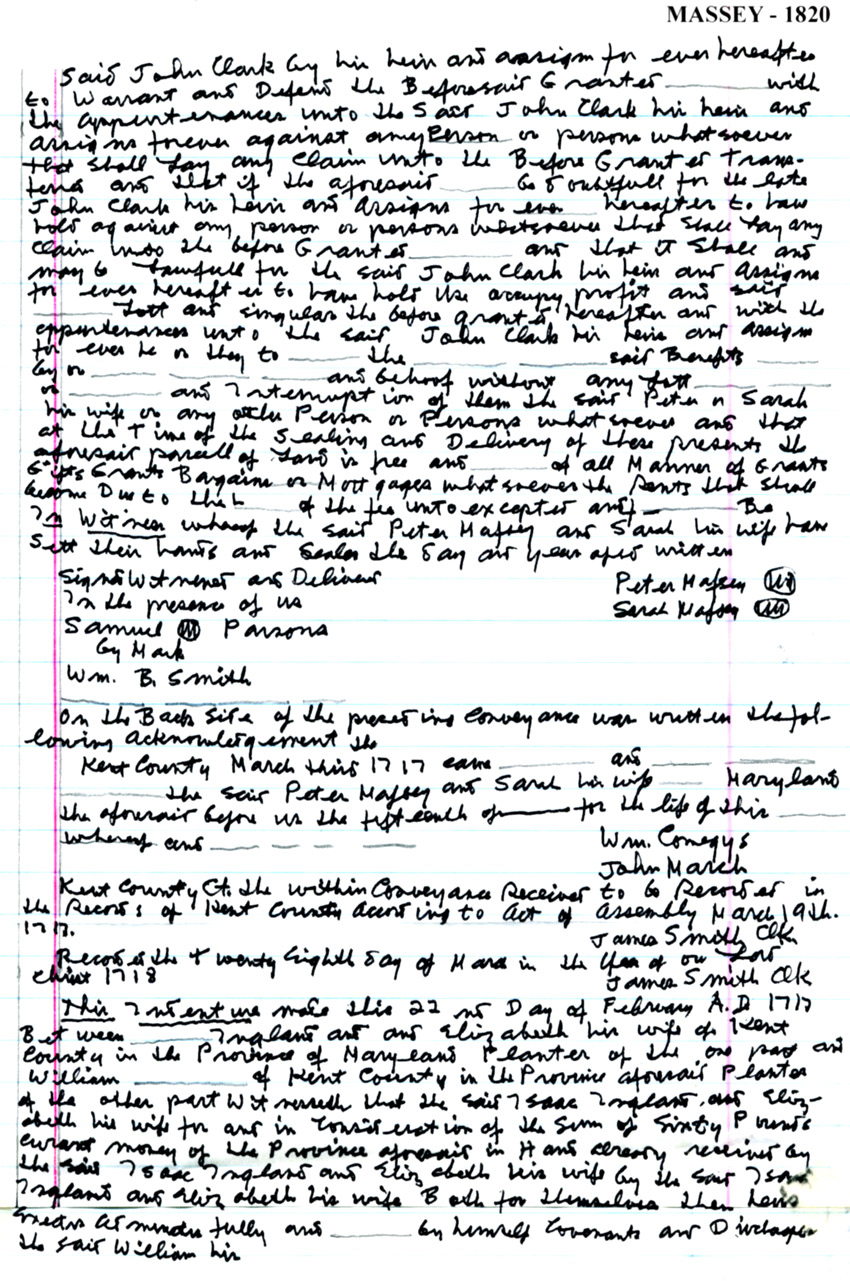 MASSEY - 1820
Said John Clark by his heirs and assigns for ever hereafter
to Warrant and Defend the Beforesaid Granted ______ with
the appurtenances unto the Said John Clark his heirs and
assigns forever against any Person or persons whatsoever
that shall Lay any Claim unto the Before Granted Trans-
ferred and that if the aforesaid ______ be doubtfull for the
John Clark his heirs and Assigns for ever hereafter to have
hold against any person or persons whatsoever that shall lay any
claim unto the before Granted ______ and that it shall and
may be lawfull for the said John Clark his heirs and assigns
for ever hereafter to have hold Use occupy profit and said
______ Lott and singular the before granted hereafter and with the
appurtenances unto the said John Clark his heirs and assigns
for ever he or they to ______ the ______ said Benefits ______
by or ______ and behoof without any Lott ______
or ______ and Interruption of them the said Peter or Sarah
his wife or any other Person or Persons whatsoever and that
at the Time of the Sealing and Delivery of these presents the
aforesaid parcell of Land is free and ______ of all Manner of Grants
Gifts Grants Bargains or Mortgages whatsoever the Rents that shall
become Due to the ______ of the fee unto excepted and ______ Be
In Witness whereof the said Peter Massey and Sarah his wife have
Sett their hands and Seales the day and year afsd written
Signed Witnessed and Delivered
In the presence of us
Peter Massey
Sarah Massey
Samuel M Parsons
by Mark
Wm. B. Smith
On the Back Side of the preceding Conveyance was written the fol-
lowing acknowledgement the
Kent County March third 1717 came ______ and ______
______ the said Peter Massey and Sarah his wife ______ Maryland
the aforesaid before us the fifteenth of ______ for the life of this ______
whereof and ______
Wm. Comegys
John March
Kent County Ct. the within Conveyance Received to be Recorded in
the Records of Kent County According to Act of Assembly March 19th.
1717.
James Smith Clk
Recorded the twenty Eighth day of March in the Year of our Lord
Christ 1718
James Smith Clk
This Indenture made this 22nd Day of February A.D 1717
Between ______ Ingland and and Elizabeth his wife of Kent
County in the Province of Maryland Planter of the one part and
William ______ of Kent County in the Province aforesaid Planter
of the other part Witnesseth that the said Isaac Ingland and Eliz-
abeth his wife for and in Consideration of the Sum of Sixty Pounds
current money of the Province aforesaid in Hand already received by
the said Isaac Ingland and Elizabeth his wife by the said Isaac
Ingland and Elizabeth his wife Both for themselves their heirs
fully and ______ by himself Covenants and
the said William his